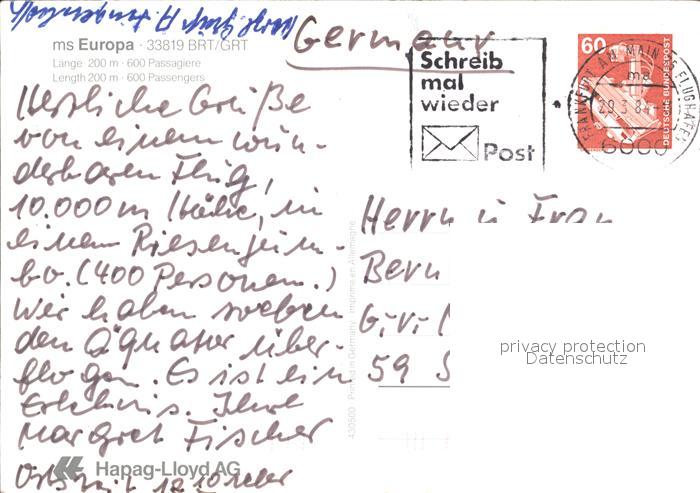 Herzl. Grüße
Germany
ms Europa · 33819 BRT/GRT
Länge 200 m · 600 Passagiere
Length 200 m · 600 Passengers
Schreib
mal
wieder
Post
60
DEUTSCHE BUNDESPOST
FRANKFURT AM MAIN FLUGHAFEN
ma
29.3.84
6000
Herzliche Grüße
von einem wun-
derbaren Flug,
10.000 m Höhe, in
einem Riesenjum-
bo. (400 Personen.)
Wir haben soeben
den Äquator über-
flogen. Es ist ein
Erlebnis. Ihre
Margret Fischer
Ortszeit
Herrn u Frau
59 S
430500 Printed in Germany · Imprimé en Allemagne
privacy protection
Datenschutz
Hapag-Lloyd AG